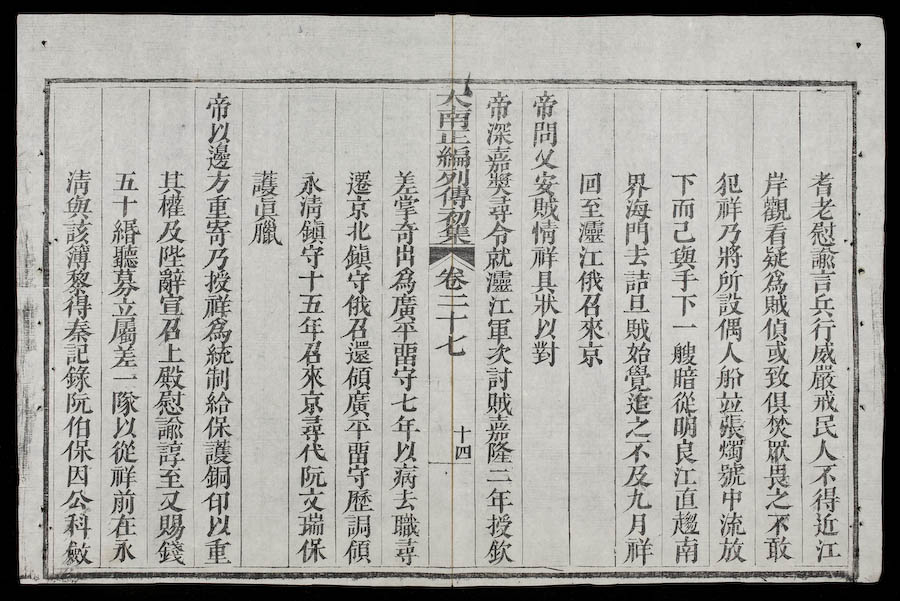 耆老慰諭言兵行威嚴戒民人不得近江
岸觀看疑爲賊偵或致俱焚厭畏之不敢
犯祥乃將所設偶人船並張燭號中流放
下而己與手下一艘暗從明良江直趨南
界海門去詰旦賊始覺追之不及九月祥
回至灅江俄召來京
帝問乂安賊情祥具狀以對
帝深嘉奬尋令就灅江軍次討賊嘉隆二年授欽
大南正編列傳初集 卷二十七 十四
差掌奇出爲廣平畱守七年以病去職尋
遷京北鎮守俄召還領廣平畱守歷調領
永清鎮守十五年召來京尋代阮文瑞保
護眞臘
帝以邊方重寄乃授祥爲統制給保護銅印以重
其權及陛辭宣召上殿慰諭諄至又賜錢
五十緡聽募立屬差一隊以從祥前在永
淸與該簿黎得秦記錄阮伯保因公科斂